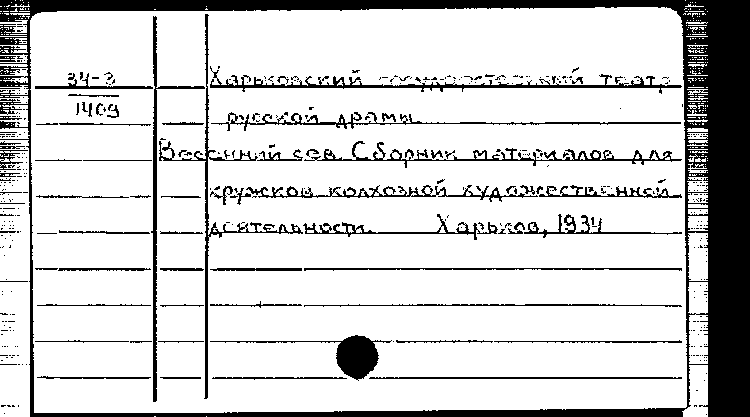 34-3
1409
Харьковский государственный театр
русской драмы.
Весенний сев. Сборник материалов для
кружков колхозной художественной
деятельности. Харьков, 1934